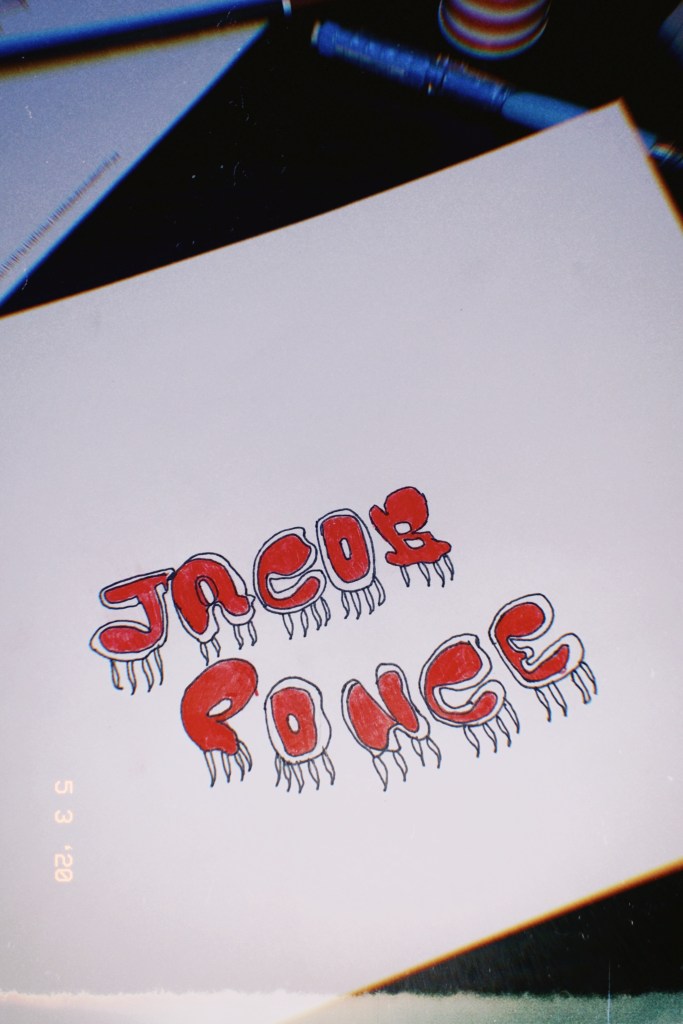 JACOB
PONCE
5 3 '20